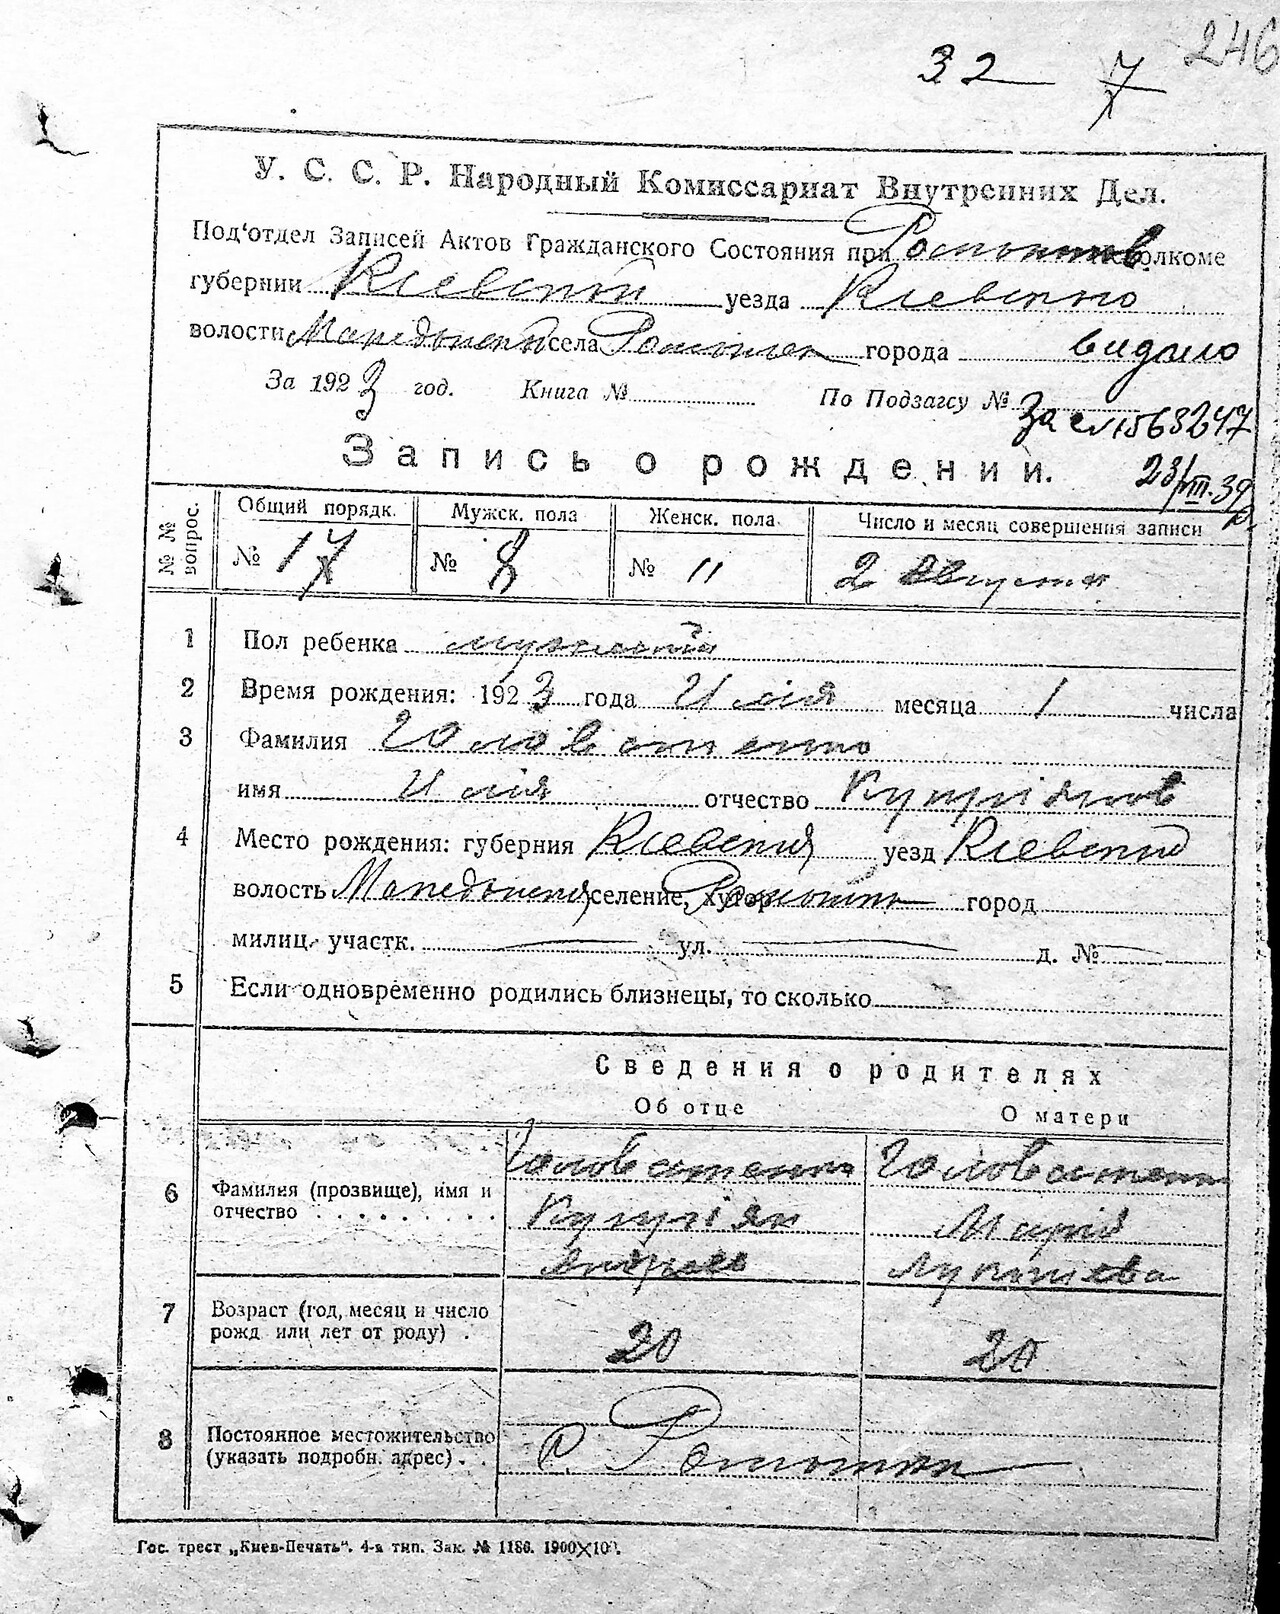 246
32 — 7
У. С. С. Р. Народный Комиссариат Внутренних Дел.
Под'отдел Записей Актов Гражданского Состояния при волкоме
губернии Кіевской уезда Кіевского
волости села города видано
За 1923 год. Книга № По Подзагсу №
23/VIII.39р.
Запись о рождении.
№ № вопрос. Общий порядк. Мужск. пола Женск. пола Число и месяц совершения записи
№ 17 № 8 № " 2 Августа
1 Пол ребенка мужской
2 Время рождения: 1923 года Июля месяца 1 числа
3 Фамилия Головатенко
имя Илія отчество Купріянов
4 Место рождения: губерния Кіевская уезд Кіевский
волость селение, хутор город
милиц. участк. — ул. — д. № —
5 Если одновременно родились близнецы, то сколько
Сведения о родителях
Об отце О матери
6 Фамилия (прозвище), имя и отчество . . . . . . . . .
Головатенко Головатенко
Купріян Марія
Андреев Лукашева
7 Возраст (год, месяц и число рожд или лет от роду) . 20 20
8 Постоянное местожительство (указать подробн. адрес) . . С.
Гос. трест „Киев-Печать“. 4-я тип. Зак. № 1186. 1900×100.